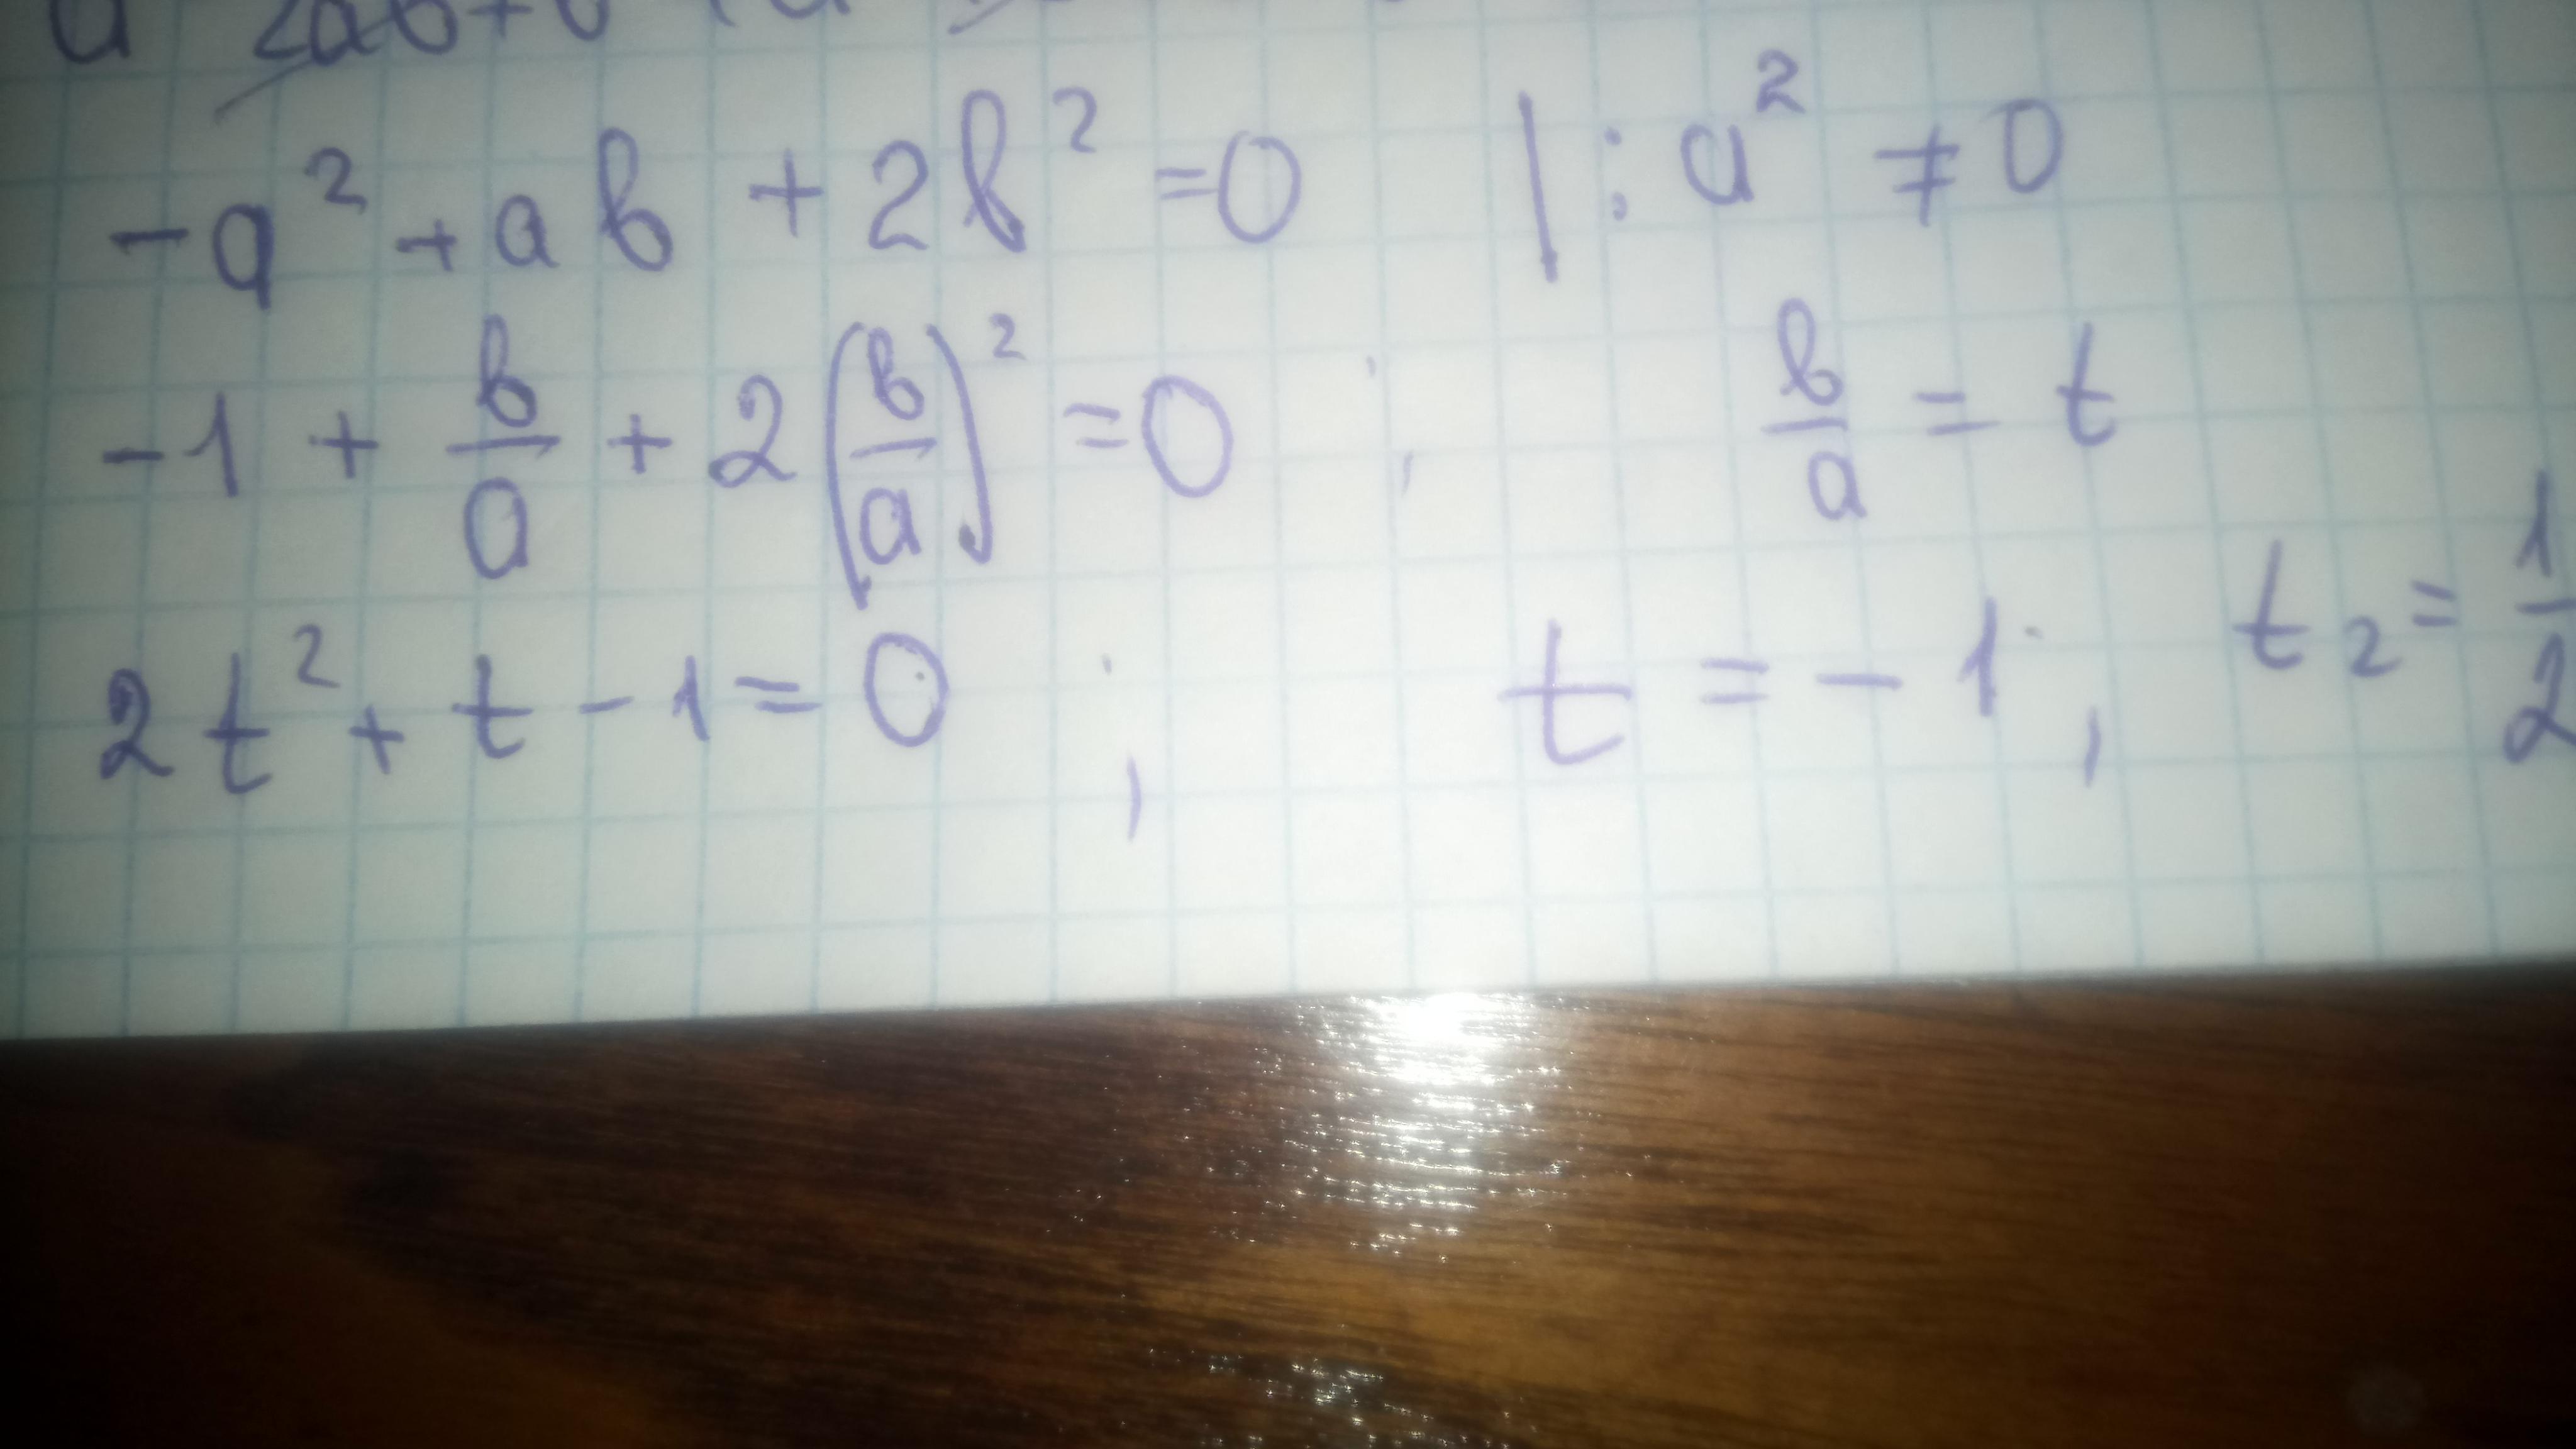 2ab+
-a² + ab + 2b² = 0 | : a² ≠ 0
-1 + b/a + 2(b/a)² = 0 ; b/a = t
2t² + t - 1 = 0 ; t = -1 ; t₂ = 1/2